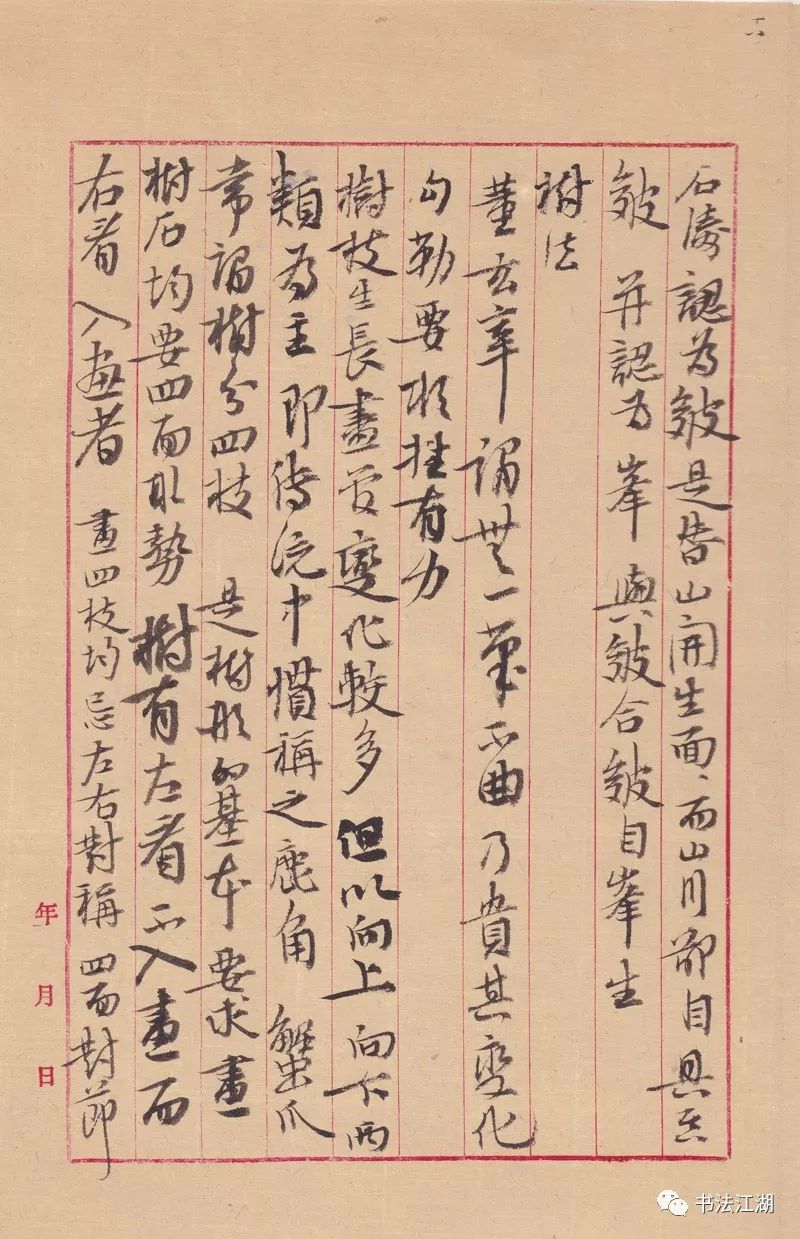 石濤認為皴是山開生面、而山川却自具其
皴 并認為峯與皴合皴自峯生
樹法
董玄宰謂無一筆不曲乃貴其變化
勾勒要有力
樹枝生長盡管變化較多 但以向上向下兩
類為主 即傳統中慣稱之鹿角 蟹爪
常謂樹分四枝 是樹形的基本要求畫
樹石均要四面取勢 樹有左看不入畫而
右看入畫者 畫四枝均忌左右對稱 四面對節
年 月 日
书法江湖